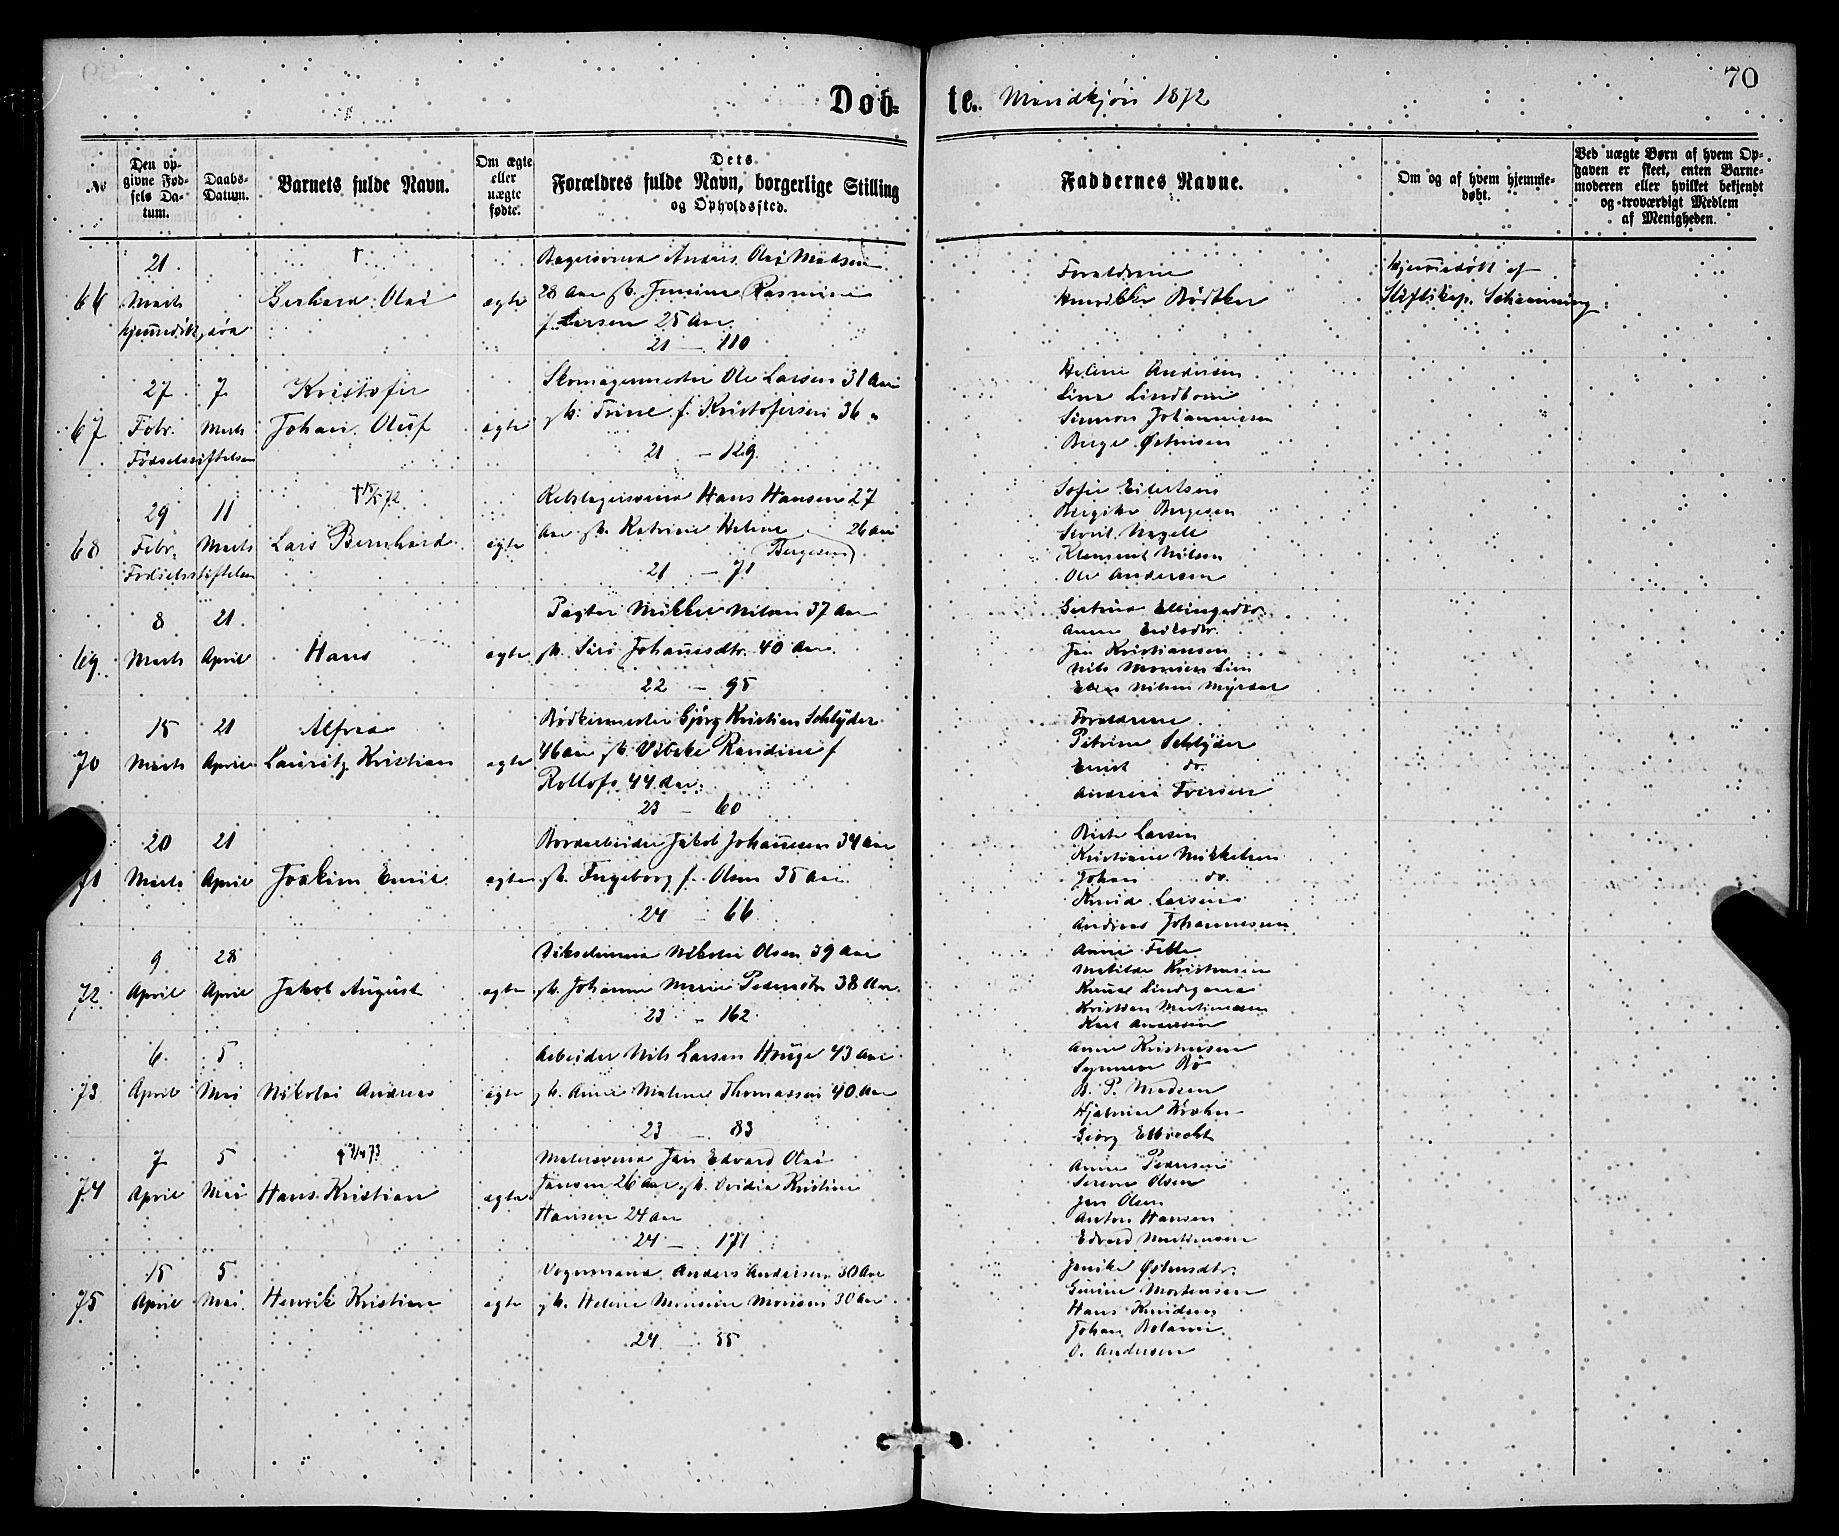 70
Døbte. Mandkjøn 1872
No
Den opgivne Fødsels Datum.
Daabs-Datum.
Barnets fulde Navn.
Om ægte eller uægte fødte.
Dets Forældres fulde Navn, borgerlige Stilling og Opholdssted.
Faddernes Navne.
Om og af hvem hjemmedøbt.
Ved uægte Børn af hvem Opgaven er skeet, enten Barnemoderen eller hvilket bekjendt og troværdigt Medlem af Menigheden.
66
21
Marts
hjemmedøbt
†
Gerhard Olai
ægte
Bagersvend Anders Olai Madsen
28 Aar
Rasmine
f. Larsen 25 Aar
21 — 110
Forældrene
Bødtker
hjemmedøbt af
Stiftskap.
67
27 7
Febr. Marts
Fødselsstiftelsen
Kristofer
Johan Oluf
ægte
Skomagermester Ole Larsen 31 Aar
Trine f. Kristofersen 36 "
21 — 129
Helene Andersen
Line Lindboe
Simon Johannesen
Berge Østensen
68
29 11
Febr. Marts
Fødselsstiftelsen
Lars Bernhard
ægte
Rebslagersvend Hans Hansen 27
Aar Katrine Helene 26 Aar
Bergesen
21 — 71
Sofie Eilertsen
Bergithe Bergesen
Klement Nilsen
Ole Andersen
69
8 21
Marts April
Hans
ægte
Pagter Mikkel Nilsen 37 Aar
Siri Johannesdtr. 40 Aar
22 — 95
Gertrud Ellingsdtr.
Anne Eriksdtr.
Jan Kristiansen
Nils Monsen Lien
Nilsen Myrdal
70
15 21
Marts April
Alfred
Lauritz Kristian
ægte
Bødkermester Gjørg Kristian Schlyder
46 Aar Vibeke Randine f
Rollofs 44 Aar
23 — 60
Forældrene
Petrine Schlyder
Ernst do.
Andrea Iversen
71
20 21
Marts April
Joakim Emil
ægte
Bordarbeider Jakob Johannesen 34 Aar
Ingeborg f. Olsen 35 Aar
24 — 66
Larsen
Kristiane Mikkelsen
Johan do.
Knud Larsen
Andreas Johannessen
72
9 28
April April
Jakob August
ægte
Nikolai Olsen 39 Aar
Johanne Marie Pedersdtr 38 Aar
23 — 162
Anne
Matilde Kristensen
Knud Lindegaard
Kristian Martinussen
Karl Andersen
73
6 5
April Mai
Nikolai Andreas
ægte
Arbeider Nils Larsen Hauge 43 Aar
Anne Malene Thomassen 40 Aar
23 — 83
Anne Kristensen
Synneve Bø
B. P. Madsen
Georg Ellbrecht
74
7 5
April Mai
Hans Kristian
ægte
Malersvend Jan Edvard Olai
Jansen 26 Aar Ovidia Kristine
Hansen 24 Aar
24 — 171
Anne Pedersen
Serene Olsen
Jan Olsen
Anton Hansen
Edvard Martinsen
75
15 5
April Mai
Henrik Kristian
ægte
Vognmand Anders Andersen 30 Aar
Helene Monsine Monsen 30 Aar
24 — 55
Janike Østensdtr.
Mortensen
Hans Knudsen
Johan
O. Andersen